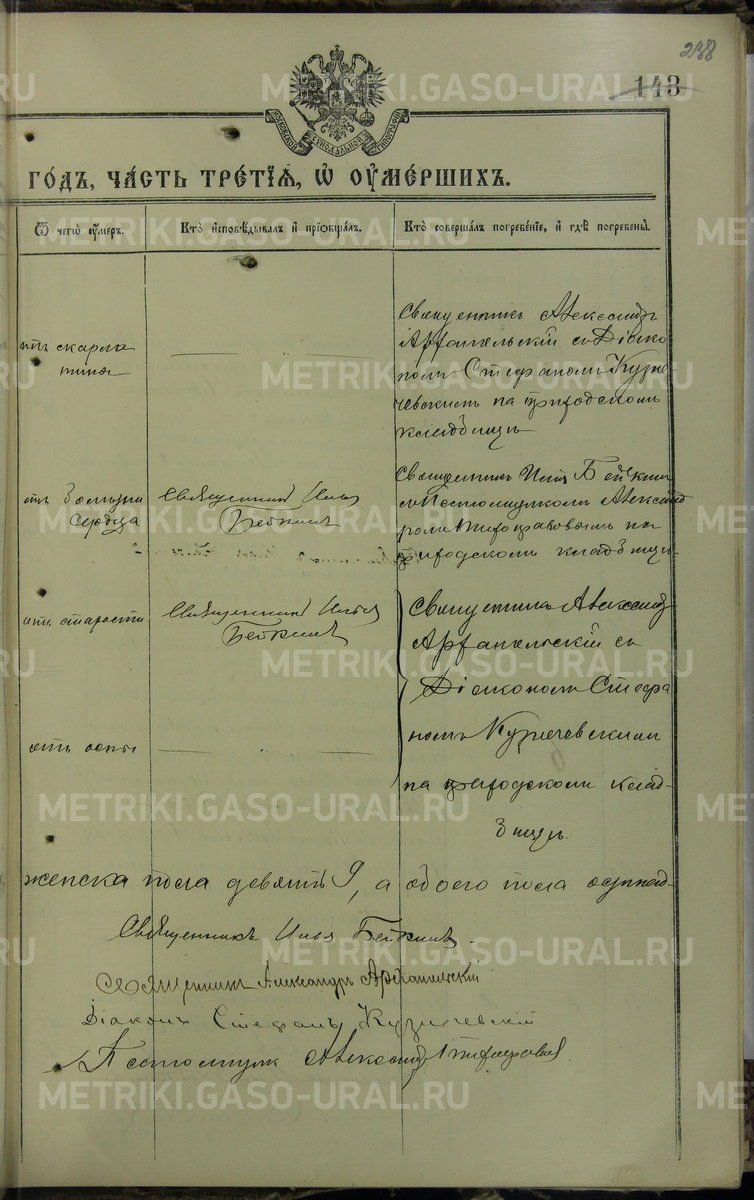 238
143
МОСКОВСКОЙ СѴНОДАЛЬНОЙ ТИПОГРАФІИ
ГО́ДЪ, ЧА́СТЬ ТРЕ́ТІѦ, Ѽ ОУМЕ́РШИХЪ.
Ѿ чегѡ̀ оу́меръ.
Кто̀ и҆сповѣ́дывалъ и҆ прїѡбща́лъ.
Кто̀ соверша́лъ погребе́нїе, и҆ гдѣ̀ погребены̀.
отъ скарла
тины
Священникъ Александръ
Архангельскій съ Діако
номъ Стефаномъ Кузне
чевскимъ на приходскомъ
кладбищѣ
отъ болѣзни
сердца
Священникъ Илья
Бейкинъ
Священникъ Илія Бейкин
съ Псаломщикомъ Александ
ромъ на
приходскомъ кладбищѣ.
отъ старости
Священникъ Илья
Бейкинъ
Священникъ Александ
Архангельскій съ
Діакономъ Стефа
номъ Кузнечевским
на приходскомъ клад-
бищѣ.
отъ оспы
женска пола девять 9, а обоего пола осмнад-
Священникъ Илья Бейкинъ.
Священникъ Александръ Архангельскій
Діаконъ Стефанъ Кузнечевскій
Псаломщик Александр
METRIKI.GASO-URAL.RU